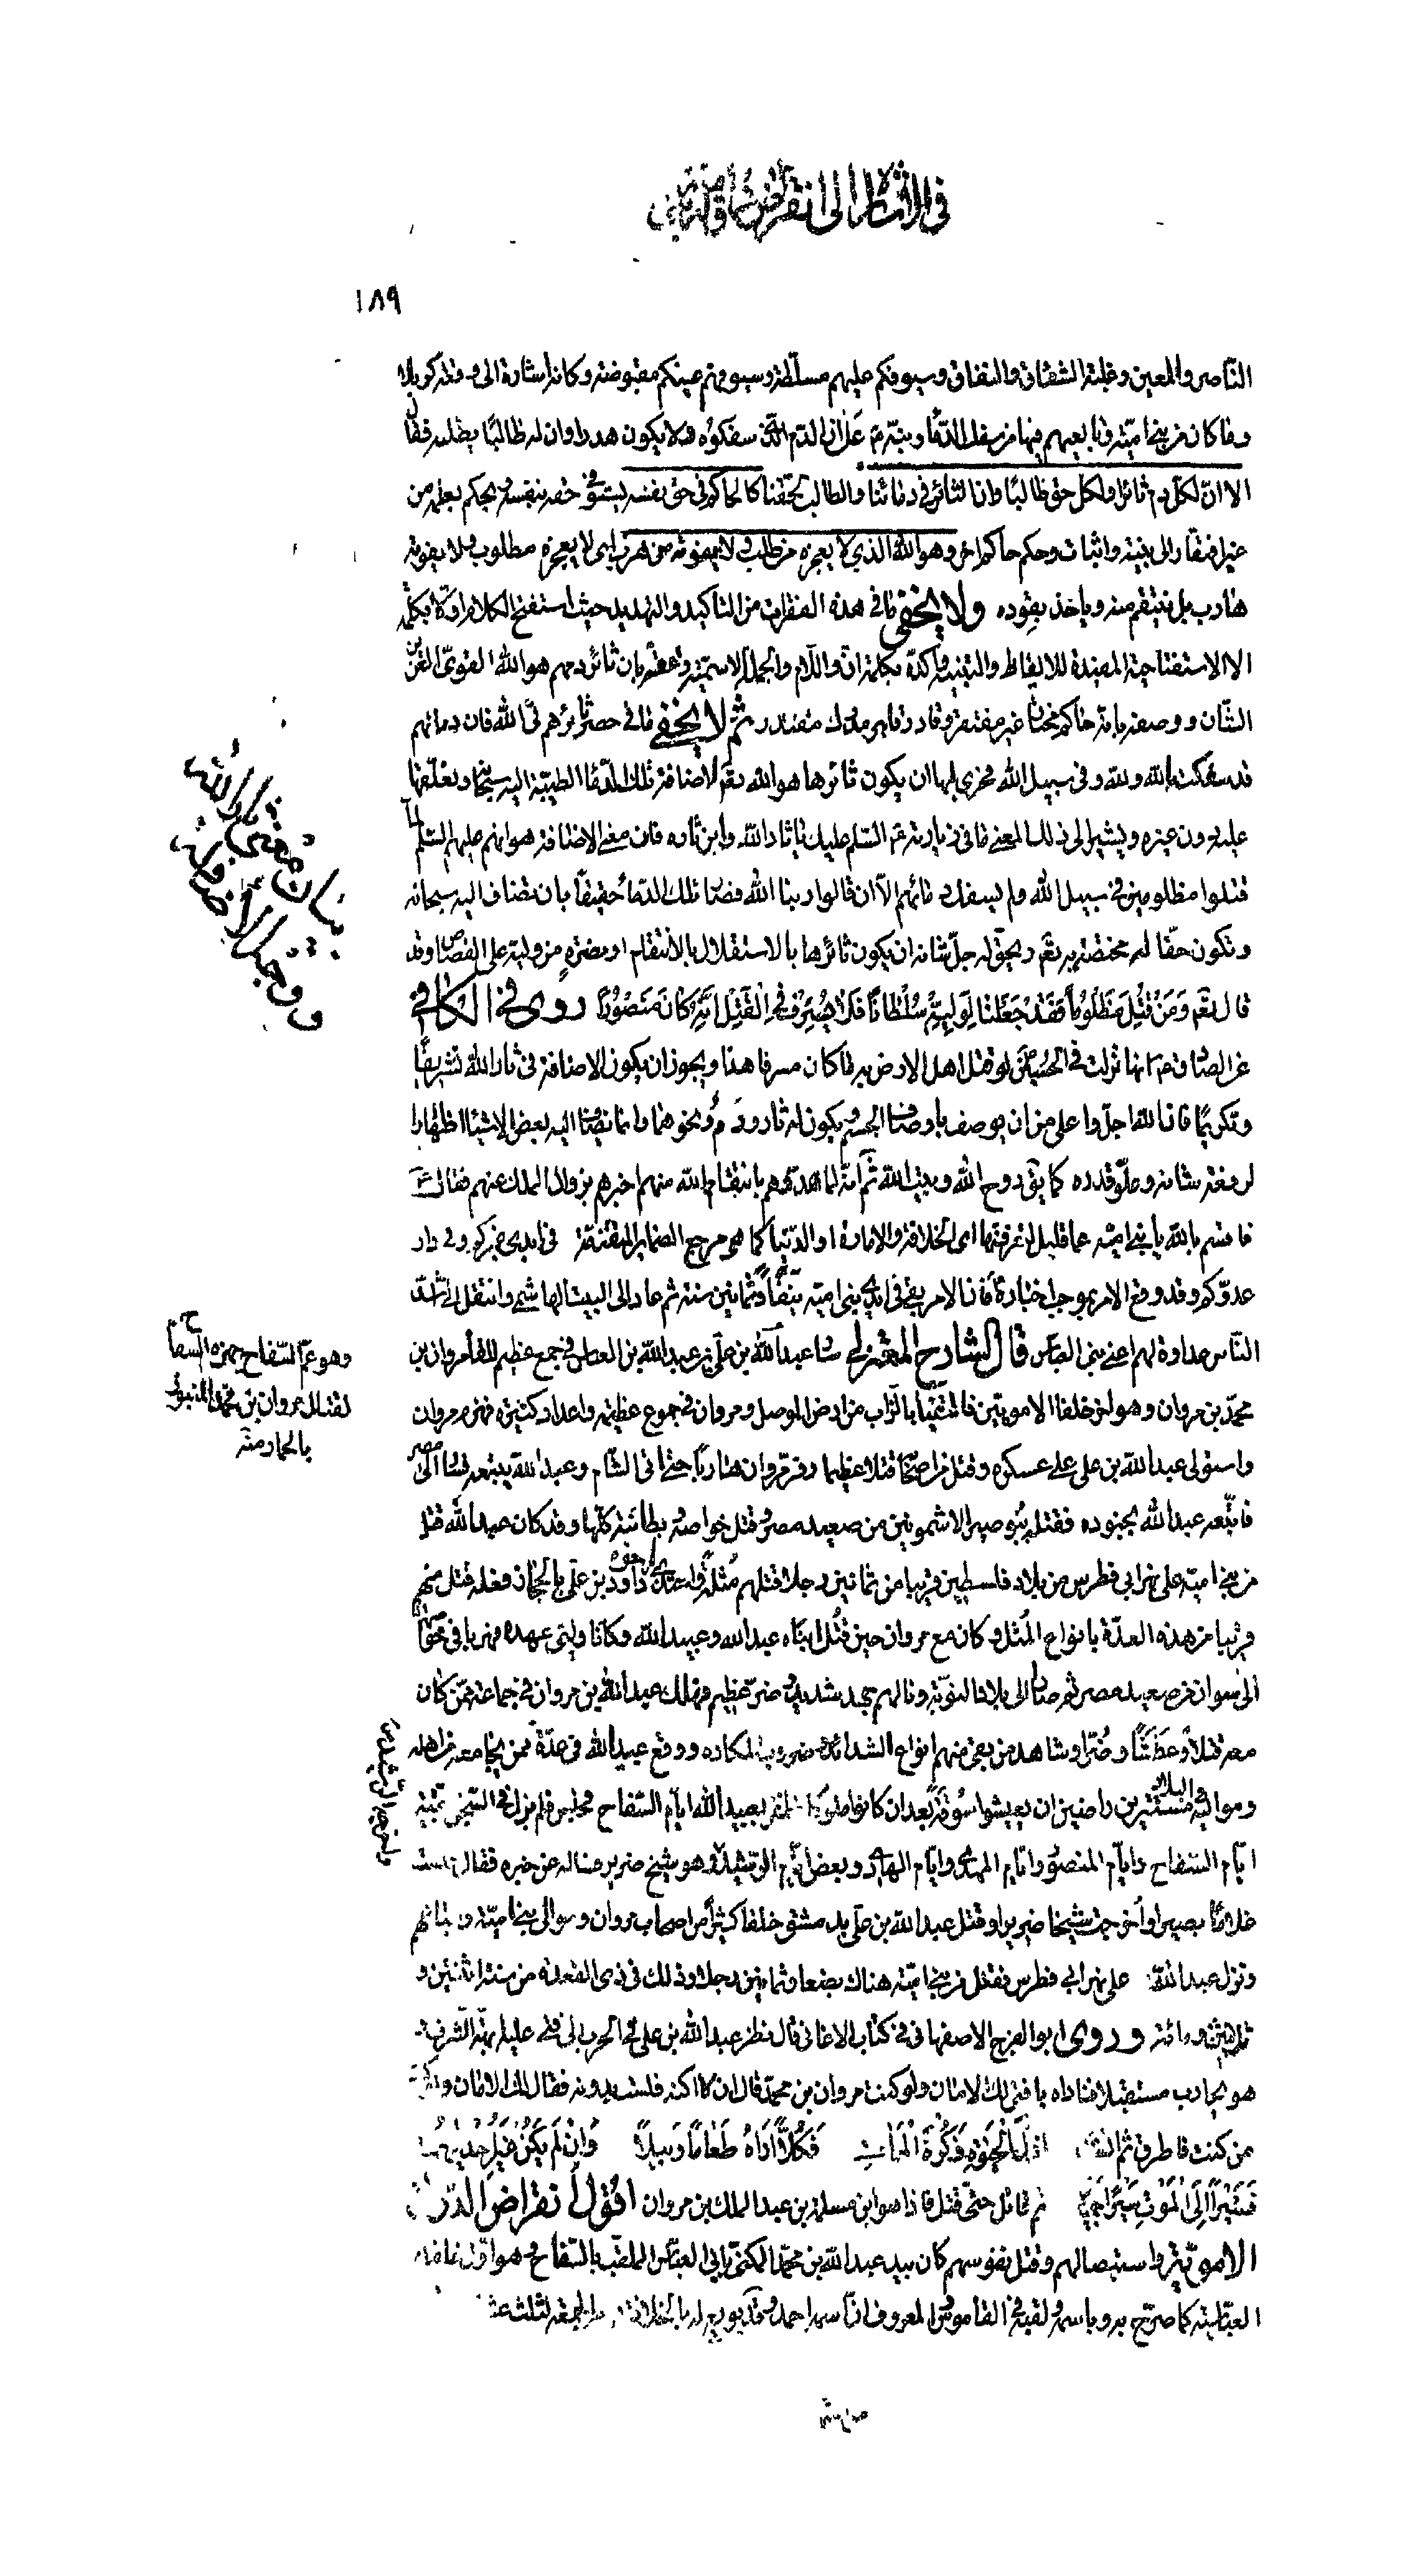 في الاشارة الى انقراض
١٨٩
النّاصر والمعين وغلبة الشقاق والنفاق وسيوفكم عليهم مسلّطة وسيوفهم عنكم مقبوضة وكانه اشارة الى وقعة كربلا
وما كان من بني اميّة وتابعيهم فيها من سفك الدّماء ونبّه ع على ان الدّم الّذي سفكوه لا يكون هدرا وان له طالبا يطلبه فقال
الا انّ لكلّ دم ثائرا ولكلّ حق طالبا وان الثائر في دمائنا والطالب لحقّنا كالحاكم في حق نفسه يستوفي حقه بنفسه ويحكم بعلمه من
غير افتقار الى بينة واثبات وحكم حاكم اخر وهو الله الذي لا يعجزه من طلب ولا يفوته من هرب اي لا يعجزه مطلوب ولا يفوته
هارب بل ينتقم منه وياخذ بقوده ولا يخفى ما في هذه الفقرات من التاكيد والتهديد حيث استفتح الكلام اوّلا بكلمة
الا الاستفتاحية المفيدة للايقاظ والتنبيه واكّده بكلمة انّ واللّام والجملة الاسميّة وعقّبه بان ثائر دمهم هو الله القويّ العزيز
الشّان ووصفه بانه حاكم غير مفتقر وقادر قاهر مدرك مقتدر ثم لا يخفى ما في حصر ثائرهم في الله فان دمائهم
قد سفكت لله وفي سبيل الله فحري لها ان يكون ثائرها هو الله تعم لاضافة تلك الدّماء الطيّبة اليه سبحانه وتعلّقها
عليه دون غيره ويشير الى ذلك المعنى ما في زيارته عم السّلام عليك يا ثار الله وابن ثاره فان معنى الاضافة هو انهم عليهم السّلم لمّا
قتلوا مظلومين في سبيل الله ولم يسفك دمائهم الّا ان قالوا ربنا الله فصار تلك الدّماء حقيقا بان تضاف اليه سبحانه
وتكون حقّا له مختصّة به تعم ويحقّ له جلّ شانه ان يكون ثائرها بالاستقلال بالانتقام او بنصرة من وليه على القصاص وقد
قال تعم وَمَنْ قُتِلَ مَظْلُوماً فَقَدْ جَعَلْنَا لِوَلِيِّهِ سُلْطَاناً فَلَا يُسْرِفْ فِي الْقَتْلِ اِنَّهُ كَانَ مَنْصُوراً روى في الكافي
عن الصّادق ع انها نزلت في الحسين لو قتل اهل الارض به ما كان مسرفا هذا ويجوز ان يكون الاضافة في ثار الله تشريفا
وتكريما فان الله اجلّ واعلى من ان يوصف باوصاف الجسم ويكون له ثار ودم ونحوهما وانما يضاف اليه بعض الاشياء اظهارا
لرفعة شانه وعلوّ قدره كما يق روح الله وبيت الله ثم انه لما هدّدهم بانتقام الله منهم اخبرهم بزوال الملك عنهم فقال
فاقسم بالله يا بني اميّة عما قليل لتعرفنّها اى الخلافة والامارة او الدّنيا كما هي مرجع الضماير المتقدّمة في ايدي غيركم وفي دار
عدوّكم وقد وقع الامر بموجب اخباره فان الامر بقي في ايدي بني امية نيّفا وثمانين سنة ثم عاد الى البيت الهاشمي وانتقل الى اشدّ
النّاس عداوة لهم اعني بني العبّاس قال الشارح المعتزلي سار عبد الله بن علي بن عبد الله بن العباس في جمع عظيم للقاء مروان بن
محمّد بن مروان وهو اخر خلفاء الامويّين فالتقيا بالزّاب من ارض الموصل ومروان في جموع عظيمة واعداد كثيرة فهزم مروان
واستولى عبد الله بن علي على عسكره وقتل من اصحابه قتلا عظيما وفرّ مروان هاربا حتى اتى الشام وعبد الله يتبعه فسار الى مصر
فاتّبعه عبد الله بجنوده فقتله ببوصير الاشمونين من صعيد مصر وقتل خواصّه وبطانته كلّها وقد كان عبد الله قتل
من بني اميّة على نهر ابي فطرس من بلاد فلسطين قريبا من ثمانين رجلا قتلهم مثلة واحتذى اخوه داود بن علي بالحجاز فعله فقتل منهم
قريبا من هذه العدّة بانواع المُثل وكان مع مروان حين قُتل ابناه عبد الله وعبيد الله وكانا وليّي عهده فهربا في خواصّهما
الى اسوان من صعيد مصر ثم صارا الى بلاد النوبة ونالهم جهد شديد وضرّ عظيم فهلك عبد الله بن مروان في جماعة ممّن كان
معه قتلا وعطشا وضرّا وشاهد من بقي منهم انواع الشدائد وضروب المكاره ووقع عبيد الله في عدّة ممن نجا معه من اهله
ومواليه في البلاد مستترين راضين ان يعيشوا سُوقة بعد ان كانوا ملوكا فظفر بعبيد الله ايّام السّفاح فحبس فلم يزل في السّجن بقيّة
ايّام السفاح وايّام المنصور وايّام المهدي وايّام الهادي وبعض ايّام الرّشيد وهو شيخ ضرير فساله عن خبره فقال حبست
غلاما بصيرا واُخرجت شيخا ضريرا وقتل عبد الله بن علي بدمشق خلقا كثيرا من اصحاب مروان وموالي بني اميّة واتباعهم
ونزل عبد الله على نهر ابي فطرس فقتل من بني اميّة هناك بضعا وثمانين رجلا وذلك في ذي القعدة من سنة اثنتين و
ثلاثين ومائة وروى ابو الفرج الاصفهاني في كتاب الاغاني قال نظر عبد الله بن علي في الحرب الى فتى عليه ابهة الشّرف و
هو يحارب مستقبلا فناداه يا فتى لك الامان ولو كنت مروان بن محمّد قال ان لا اكنه فلست بدونه فقال لك الامان
من كنت فاطرق ثم انشد اَذُلَّ الْحَيوةِ وَكُرْهَ الْمَمَاتِ فَكُلًّا اَرَاهُ طَعَاماً وَبِيلاً وَاِنْ لَمْ يَكُنْ غَيْرُ اِحْدَيهِمَا
فَسَيْراً اِلَى الْمَوْتِ سَيْراً جَمِيلاً ثم قاتل حتّى قتل فاذا هو ابن مسلمة بن عبد الملك بن مروان اقول انقراض الدّولة
الامويّة واستيصالهم وقتل نفوسهم كان بيد عبد الله بن محمّد المكنّى بابي العبّاس الملقّب بالسّفاح وهو اوّل خلفاء
العبّاسيّة كما صرّح به وباسمه ولقبه في القاموس والمعروف انّ اسمه احمد وقد بويع له بالخلافة الجمعة لثلث
بيان معنى ثار الله
ووجه الاضافة
وهو عمّ السّفاح جهّزه السّفاح
لقتال مروان بن محمّد المنبوز
بالحمار منه